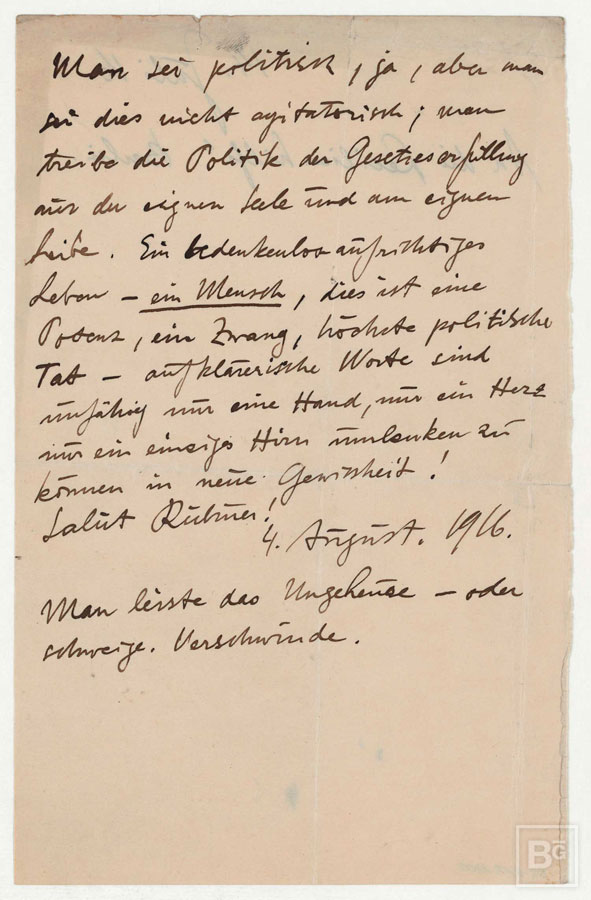 Man sei politisch, ja, aber man
sei dies nicht agitatorisch; man
treibe die Politik der Gesetzeserfüllung
nur der eignen Seele und am eignen
Leibe. Ein bedenkenlos aufrichtiges
Leben – ein Mensch, dies ist eine
Potenz, ein Zwang, höchste politische
Tat – aufklärerische Worte sind
unfähig nur eine Hand, nur ein Herz
nur ein einziges Hirn umlenken zu
können in neue Gewissheit!
Salut Rubiner!
4. August. 1916.
Man leiste das Ungeheure – oder
schweige. Verschwinde.
BG